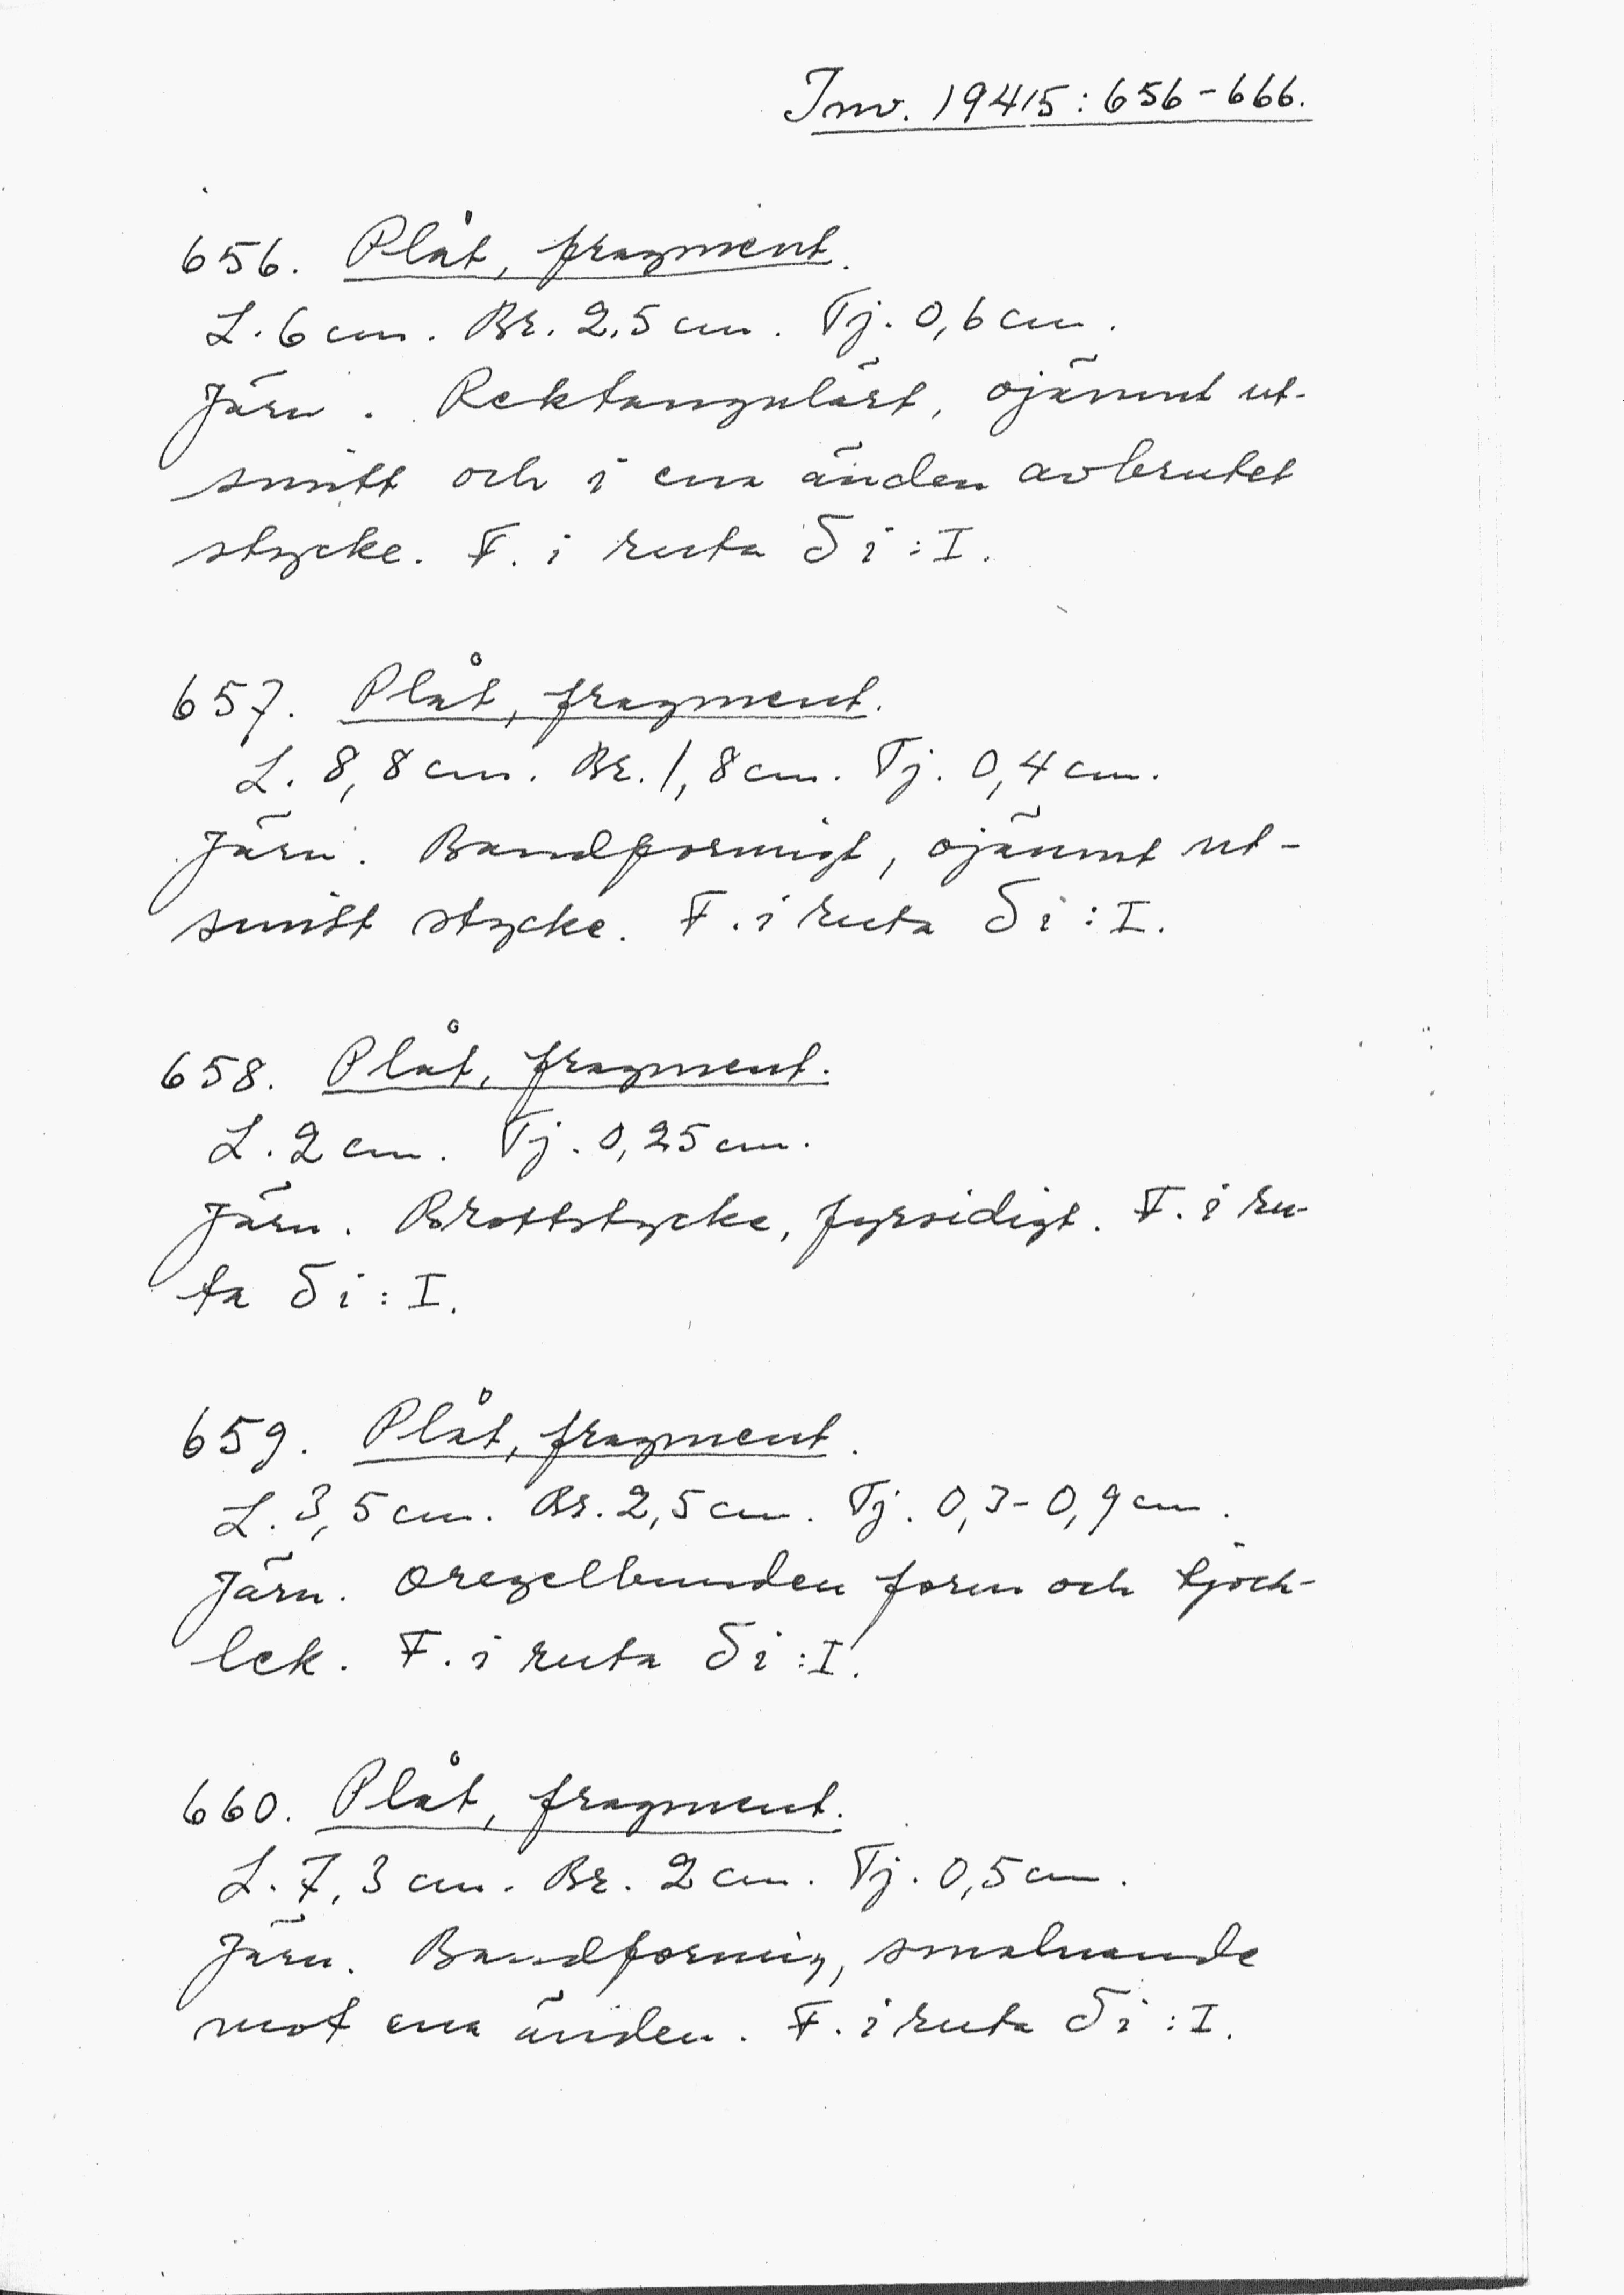 Inv. 19415:656-666.
656. Plåt, fragment.
L. 6 cm. Br. 2,5 cm. Tj. 0,6 cm.
Järn. Rektangulärt, ojämnt ut-
snitt och i ena änden avbrutet
stycke. F. i ruta δ i : I.
657. Plåt, fragment.
L. 8,8 cm. Br. 1,8 cm. Tj. 0,4 cm.
Järn. Bandformigt, ojämnt ut-
snitt stycke. F. i ruta δ i : I.
658. Plåt, fragment.
L. 2 cm. Tj. 0,25 cm.
Järn. Brottstycke, fyrsidigt. F. i ru-
ta δ i : I.
659. Plåt, fragment.
L. 3,5 cm. Br. 2,5 cm. Tj. 0,3-0,9 cm.
Järn. Oregelbunden form och tjock-
lek. F. i ruta δ i : I.
660. Plåt, fragment.
L. 7,3 cm. Br. 2 cm. Tj. 0,5 cm.
Järn. Bandformig, smalnande
mot ena änden. F. i ruta δ i : I.